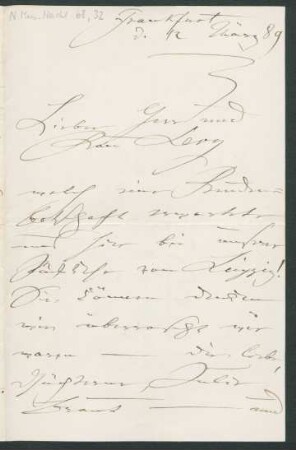 N. Mus. Nachl. 48, 32
Frankfurt
d. 12 März 89
Lieber Herr und
Frau Levy
welch eine Freuden-
botschaft erwartete
uns hier bei unserer
Rückkehr von Leipzig!
Sie können denken
wie überrascht wir
waren — die liebe
Braut — und